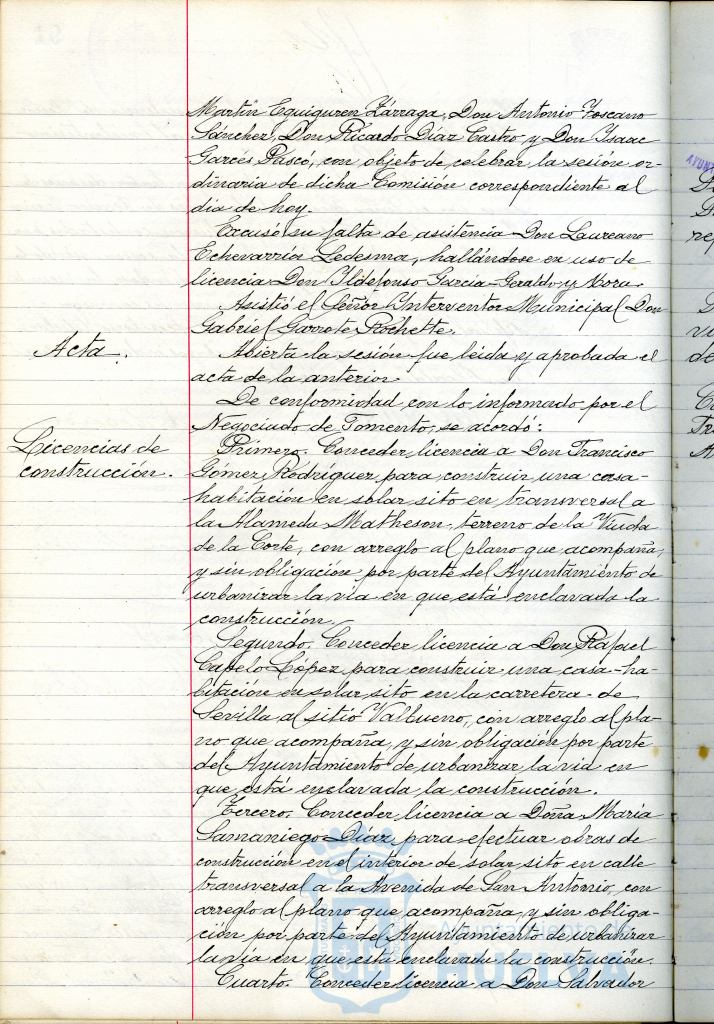 Martín Eguiguren Zárraga, Don Antonio Toscano
Sánchez, Don Ricardo Díaz Castro y Don Ysaac
Garcés Pasco, con objeto de celebrar la sesión or-
dinaria de dicha Comisión correspondiente al
día de hoy.
Excusó su falta de asistencia Don Laureano
Echevarría Ledesma, hallándose en uso de
licencia Don Yldefonso García Geraldo y Mora.
Asistió el Señor Ynterventor Municipal Don
Gabriel Garrote Rochette.
Acta.
Abierta la sesión fue leída y aprobada el
acta de la anterior.
De conformidad con lo informado por el
Negociado de Fomento, se acordó:
Licencias de
construcción.
Primero. Conceder licencia a Don Francisco
Gómez Rodríguez para construir una casa-
habitación en solar sito en transversal a
la Alameda Matheson, terreno de la Viuda
de la Corte, con arreglo al plano que acompaña,
y sin obligación por parte del Ayuntamiento de
urbanizar la vía en que está enclavada la
construcción.
Segundo. Conceder licencia a Don Rafael
Capelo López para construir una casa-ha-
bitación en solar sito en la carretera de
Sevilla al sitio Valbueno, con arreglo al pla-
no que acompaña, y sin obligación por parte
del Ayuntamiento de urbanizar la vía en
que está enclavada la construcción.
Tercero. Conceder licencia a Doña María
Samaniego Díaz para efectuar obras de
construcción en el interior de solar sito en calle
transversal a la Avenida de San Antonio, con
arreglo al plano que acompaña, y sin obliga-
ción por parte del Ayuntamiento de urbanizar
la vía en que está enclavada la construcción.
Cuarto. Conceder licencia a Don Salvador
Ayuntamiento de
HUELVA